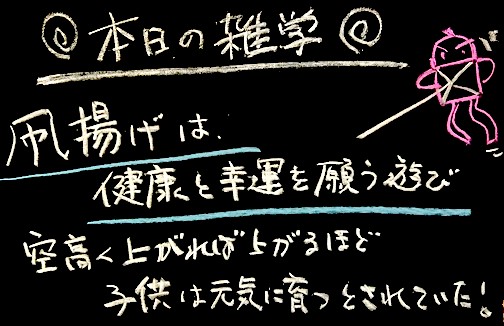 本日の雑学
凧揚げは、
健康と幸運を願う遊び
空高く上がれば上がるほど
子供は元気に育つとされていた!